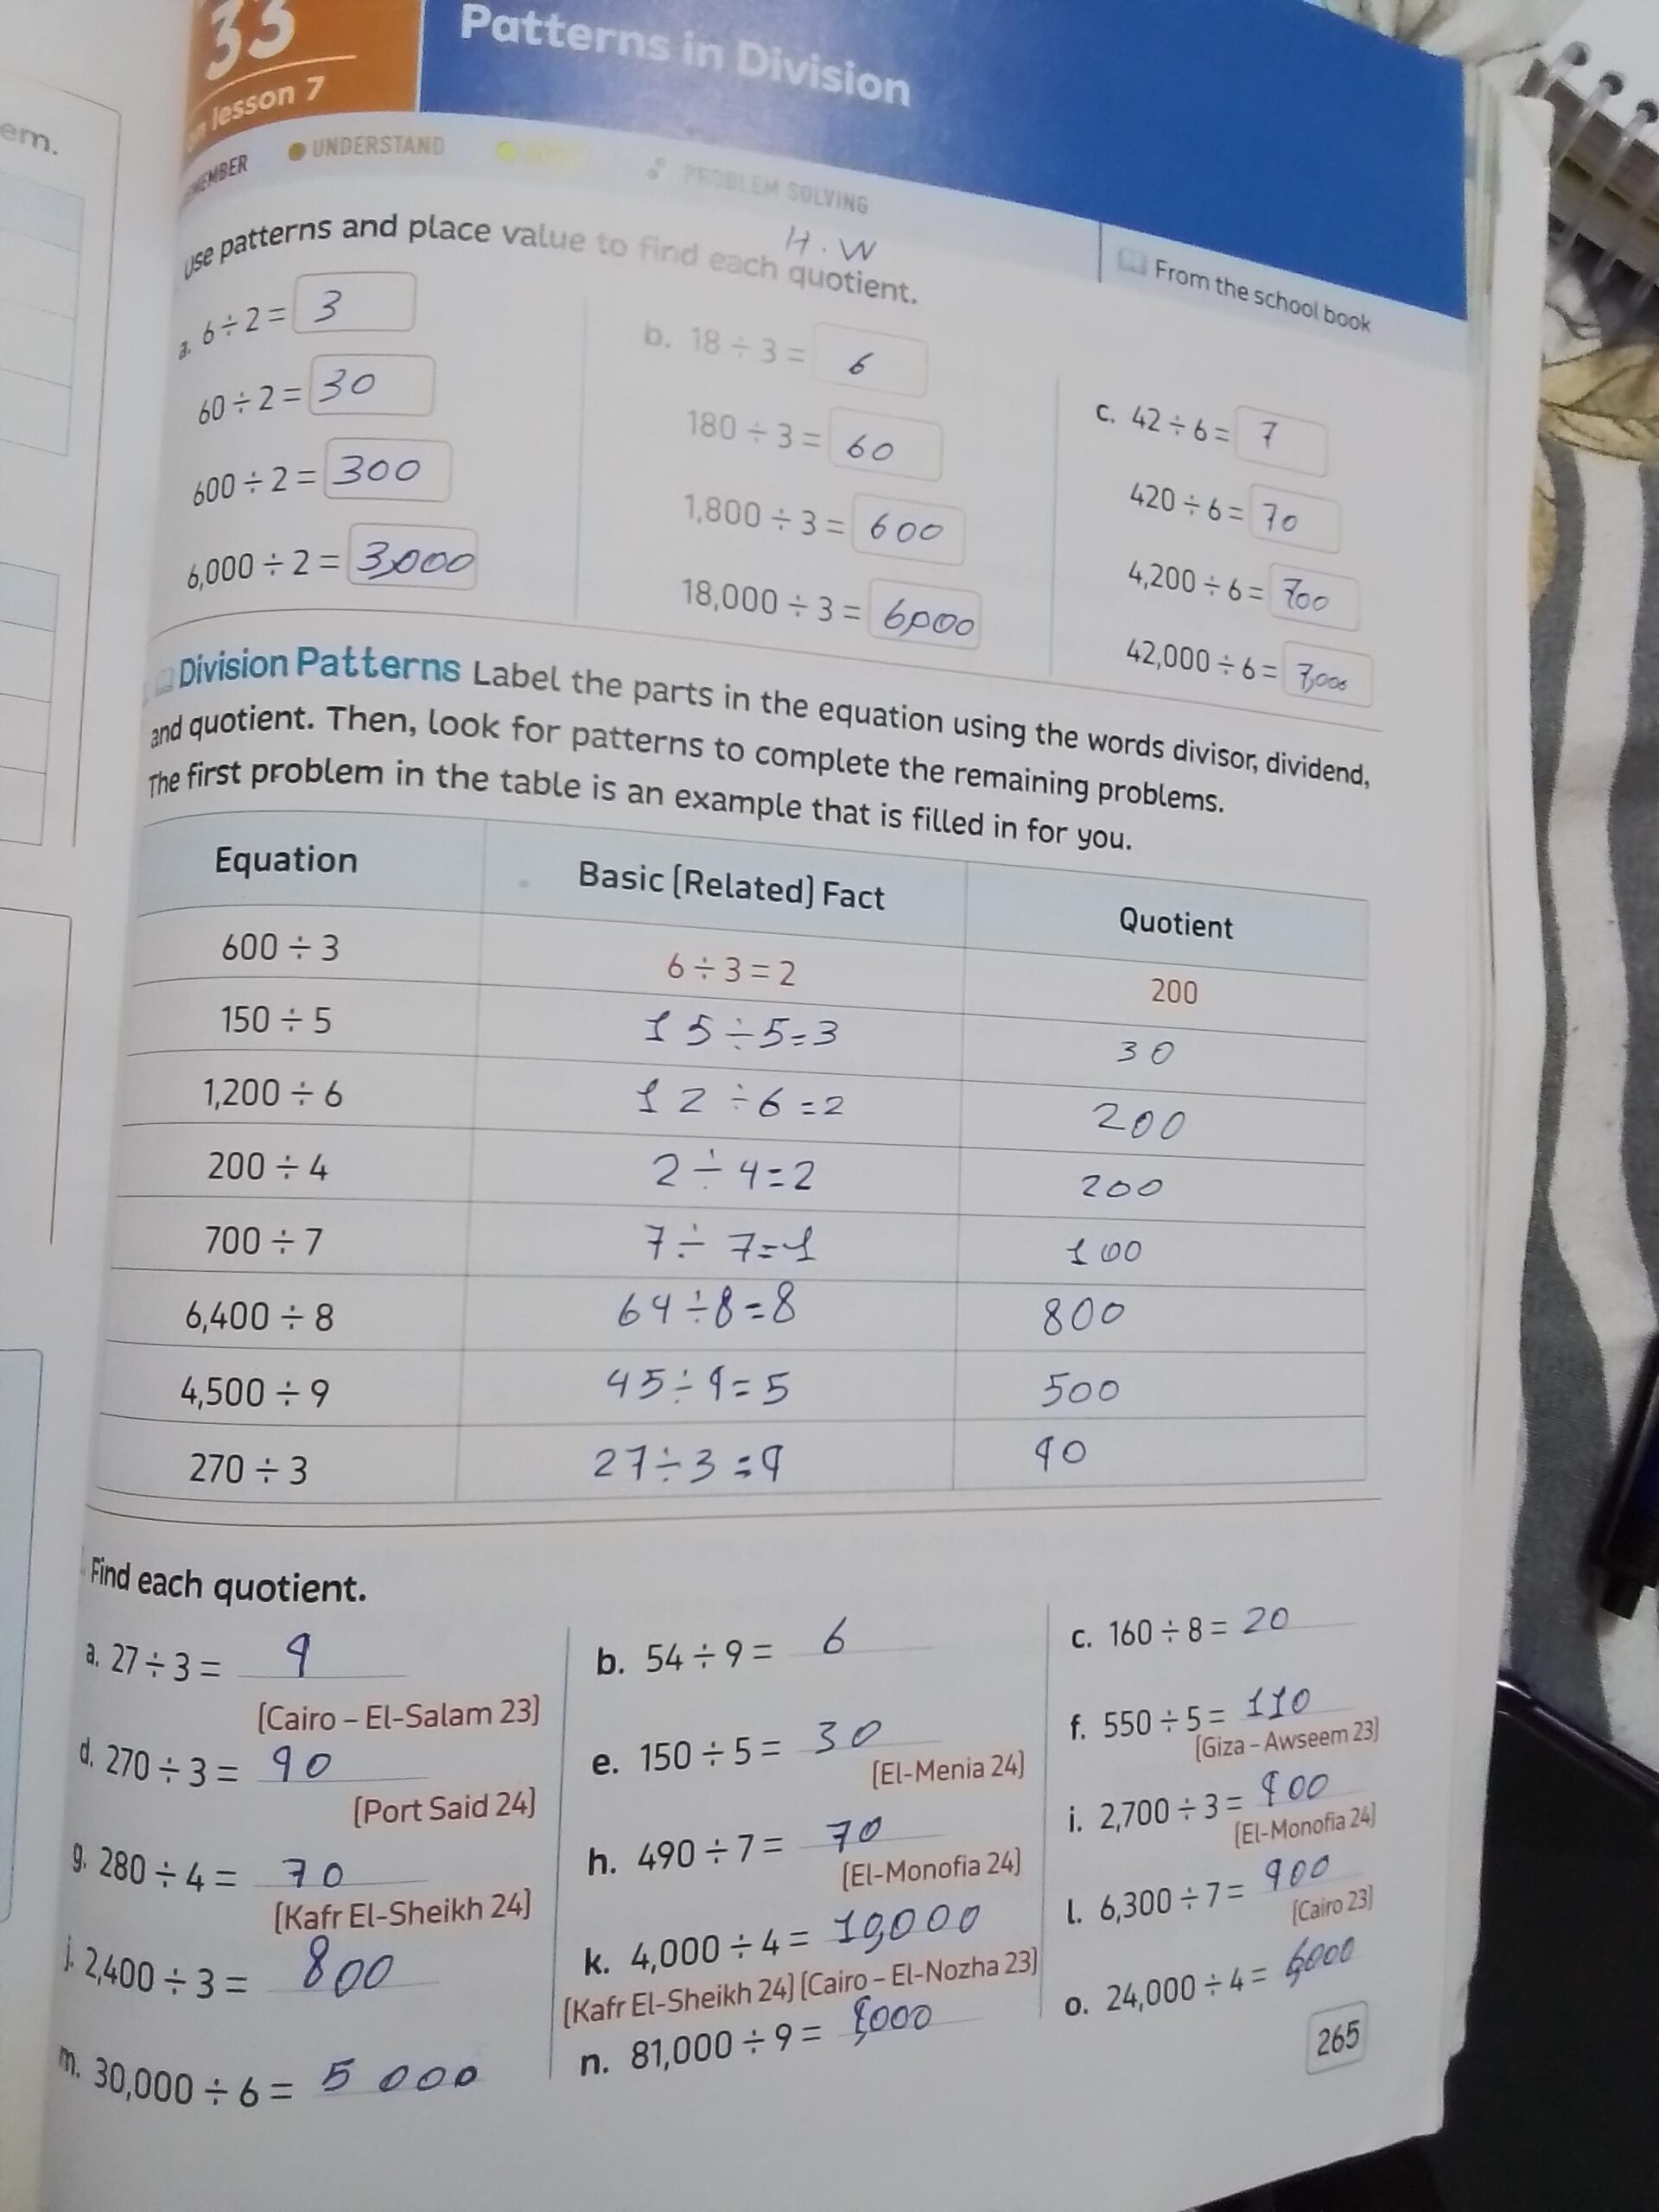 em.
33
on lesson 7
Patterns in Division
UNDERSTAND
PROBLEM SOLVING
H.W
From the school book
Use patterns and place value to find each quotient.
a. 6 ÷ 2 = 3
60 ÷ 2 = 30
600 ÷ 2 = 300
6,000 ÷ 2 = 3,000
b. 18 ÷ 3 = 6
180 ÷ 3 = 60
1,800 ÷ 3 = 600
18,000 ÷ 3 = 6,000
c. 42 ÷ 6 = 7
420 ÷ 6 = 70
4,200 ÷ 6 = 700
42,000 ÷ 6 = 7,000
Division Patterns Label the parts in the equation using the words divisor, dividend,
and quotient. Then, look for patterns to complete the remaining problems.
The first problem in the table is an example that is filled in for you.
Equation Basic [Related] Fact Quotient
600 ÷ 3 6 ÷ 3 = 2 200
150 ÷ 5 15 ÷ 5 = 3 30
1,200 ÷ 6 12 ÷ 6 = 2 200
200 ÷ 4 2 ÷ 4 = 2 200
700 ÷ 7 7 ÷ 7 = 1 100
6,400 ÷ 8 64 ÷ 8 = 8 800
4,500 ÷ 9 45 ÷ 9 = 5 500
270 ÷ 3 27 ÷ 3 = 9 90
Find each quotient.
a. 27 ÷ 3 = 9
[Cairo – El-Salam 23]
b. 54 ÷ 9 = 6
c. 160 ÷ 8 = 20
d. 270 ÷ 3 = 90
[Port Said 24]
e. 150 ÷ 5 = 30
[El-Menia 24]
f. 550 ÷ 5 = 110
[Giza – Awseem 23]
g. 280 ÷ 4 = 70
[Kafr El-Sheikh 24]
h. 490 ÷ 7 = 70
[El-Monofia 24]
i. 2,700 ÷ 3 = 900
[El-Monofia 24]
j. 2,400 ÷ 3 = 800
k. 4,000 ÷ 4 = 10,000
[Kafr El-Sheikh 24] [Cairo – El-Nozha 23]
l. 6,300 ÷ 7 = 900
[Cairo 23]
m. 30,000 ÷ 6 = 5 000
n. 81,000 ÷ 9 = 9,000
o. 24,000 ÷ 4 = 6,000
265